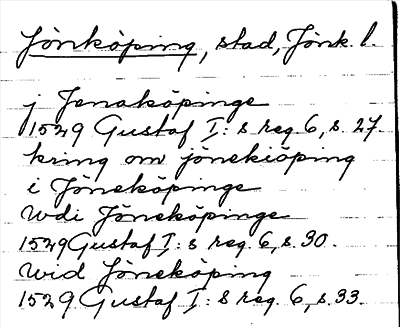 Jönköping, stad, Jönk. l.
j Jenaköpinge
1529 Gustaf I:s reg. 6, s. 27.
kring om jönekiöping
i Jöneköpinge
Wdi Jöneköpinge
1529 Gustaf I:s reg. 6, s. 30.
wid Jöneköping
1529 Gustaf I:s reg. 6, s. 33.